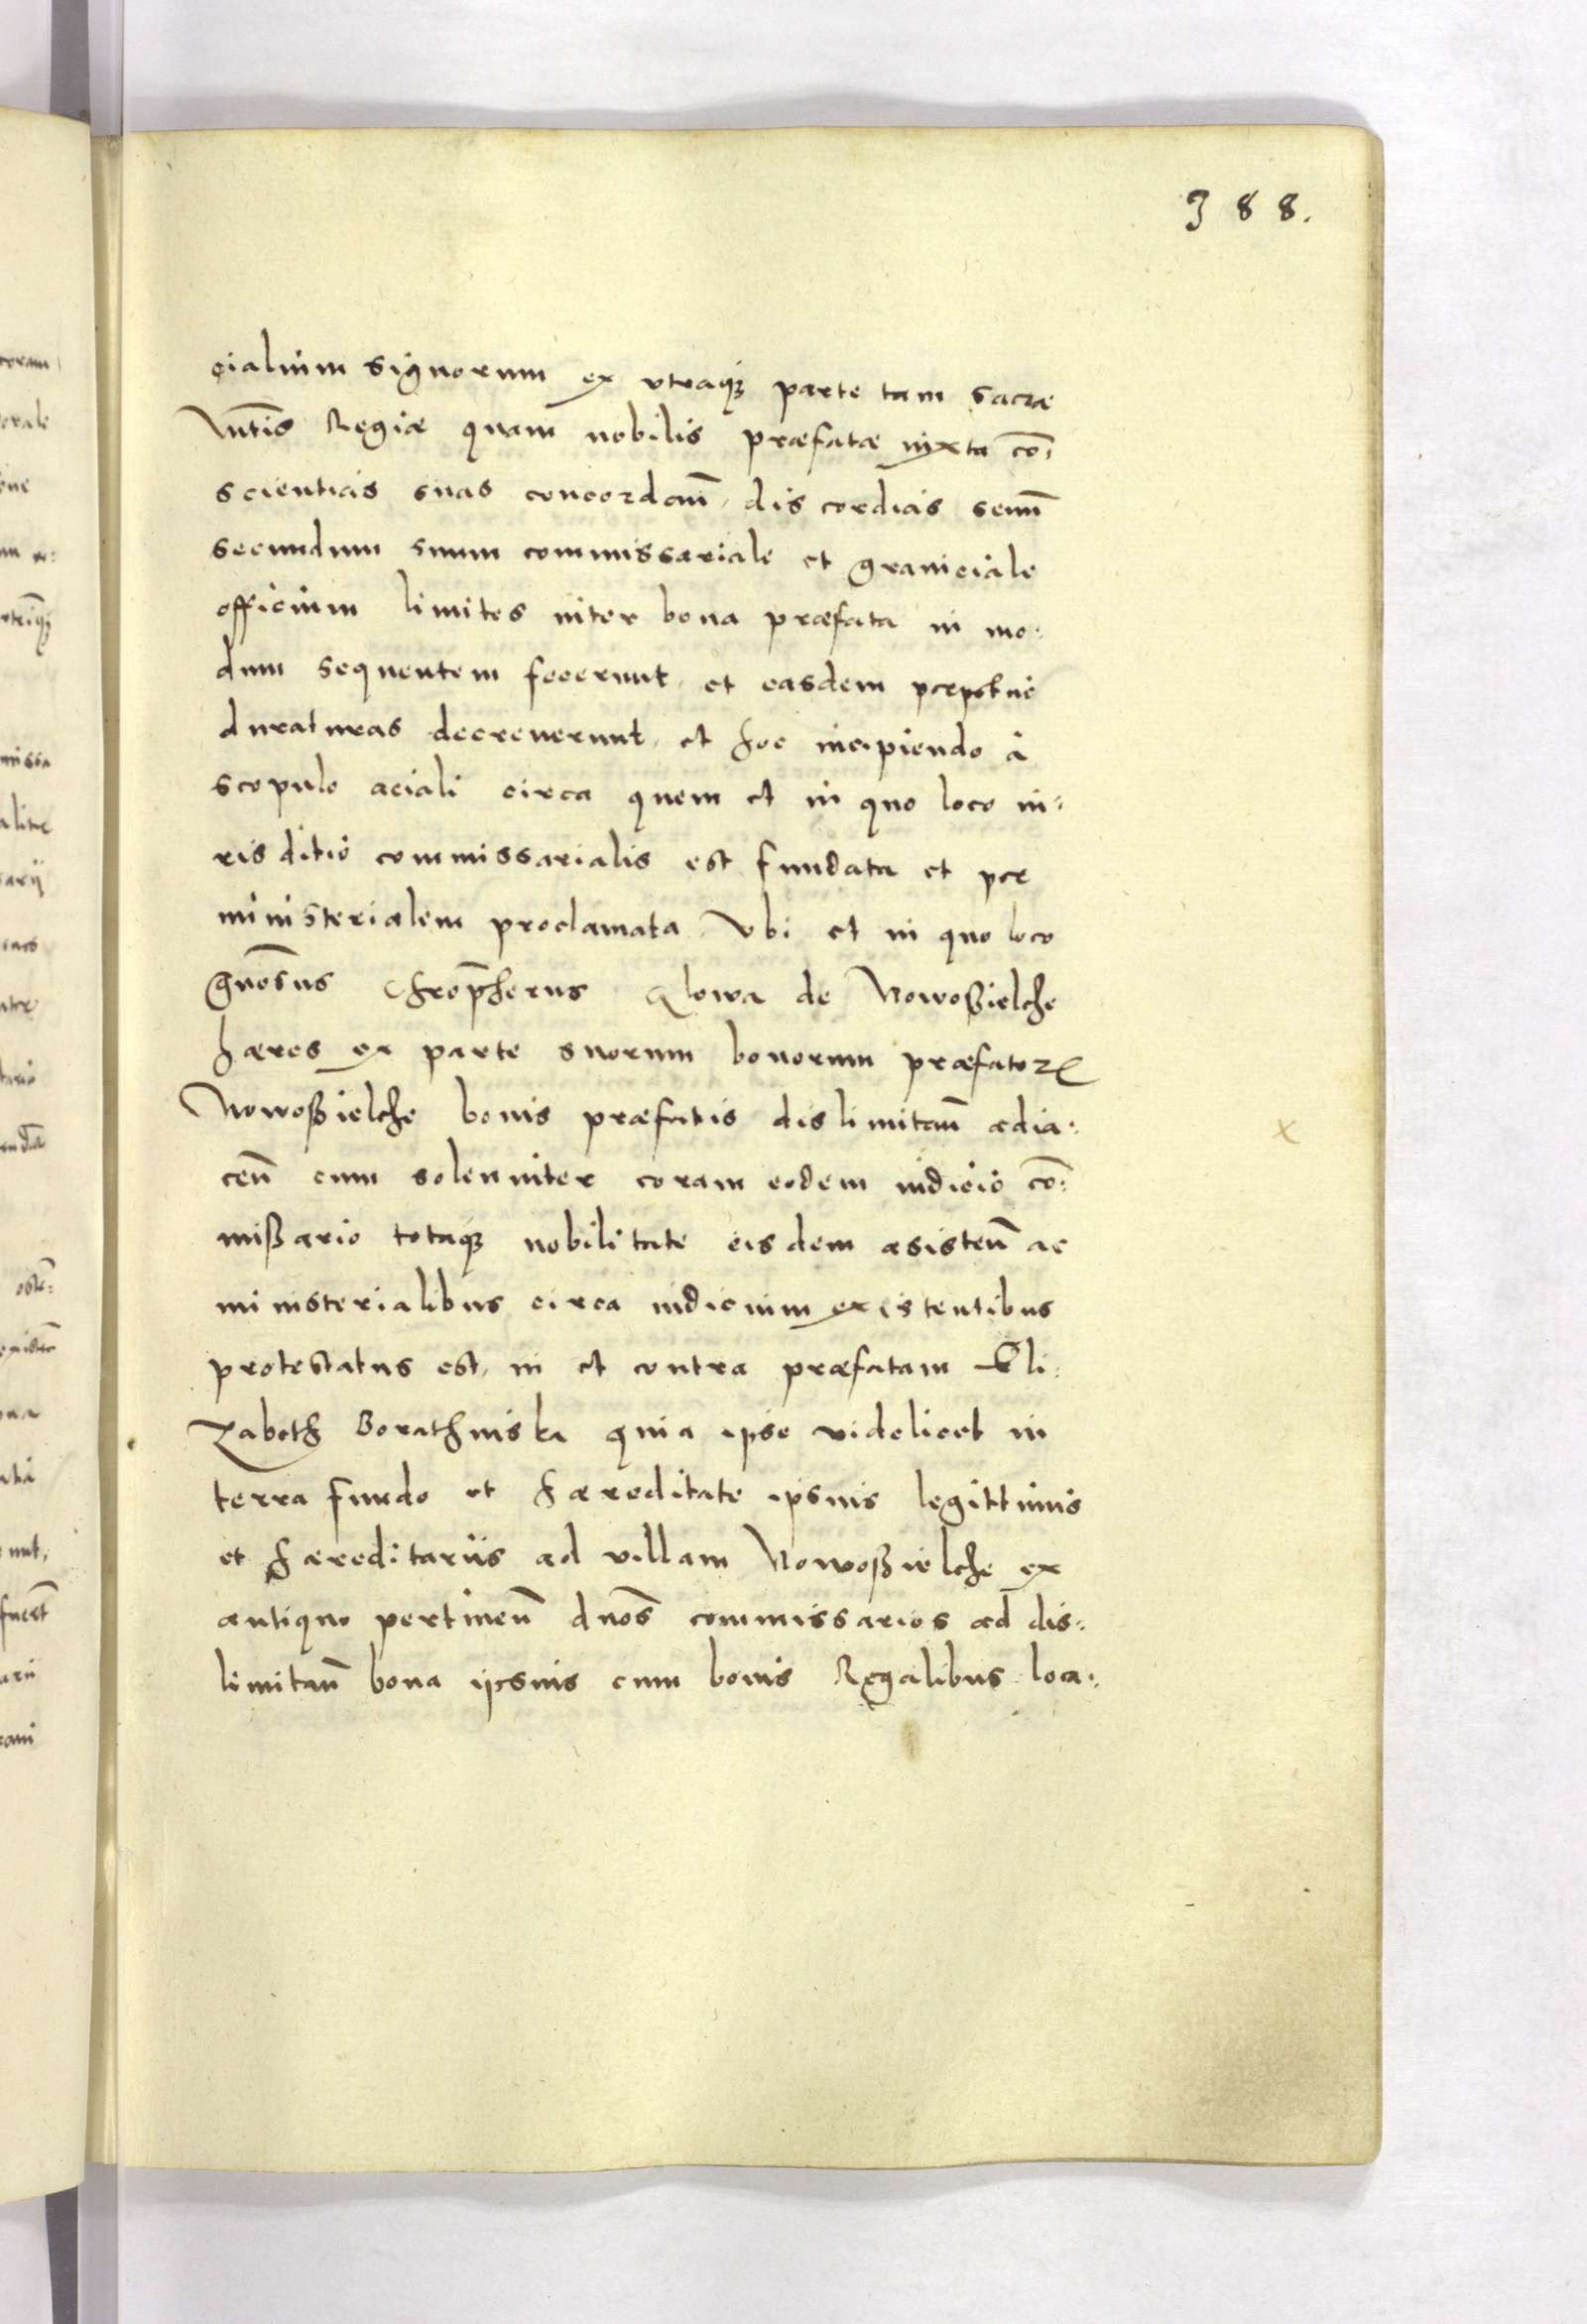 388.
cialium signorum ex vtraqꝫ parte tam sacræ
Mtīs Regiæ quam nobilis præfatæ iuxta cō:
scientias suas concordan̄, discordias semn̄
secundum suum commissariale et graniciale
officium limites inter bona præfata in mo:
dum sequentem fecerunt, et easdem perpetue
duraturas decreverunt, et hoc incipiendo a
scopulo aciali circa quem et in quo loco iu:
risditio commissarialis est fundata et per
ministerialem proclamata. Vbi et in quo loco
gnōsus Chrop̄herus Glowa de Nowoßielche
hæres ex parte suorum bonorum præfatorꝝ
Nowoßielche bonis præfatis dislimitan̄ adia:
cen̄ cum solenniter coram eodem iudicio cō:
mißario totaqꝫ nobilitate eisdem asisten̄ ac
ministerialibus circa iudicium existentibus
protestatus est, in et contra præfatam Eli:
zabeth Borathniska quia ipse videlicet in
terra fundo et hæreditate ipsius legittimis
et hæreditariis ad villam Nowoßielche ex
antiquo pertinen̄ dnōs commissarios ad dis:
limitan̄ bona ipsius cum bonis Regalibus loca: